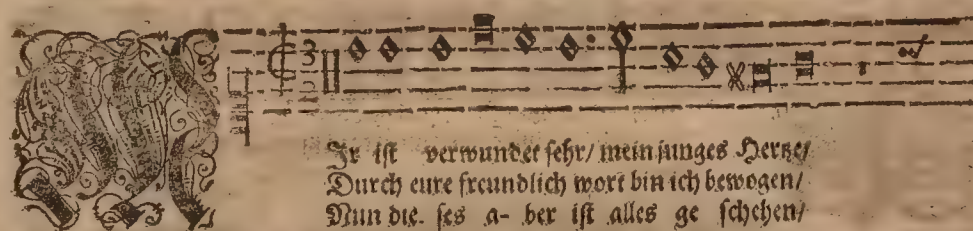 Ir ist verwundet sehr/ mein junges Hertze/
Durch eure freundlich wort bin ich bewogen/
Nun die. ses a- ber ist alles ge schehen/